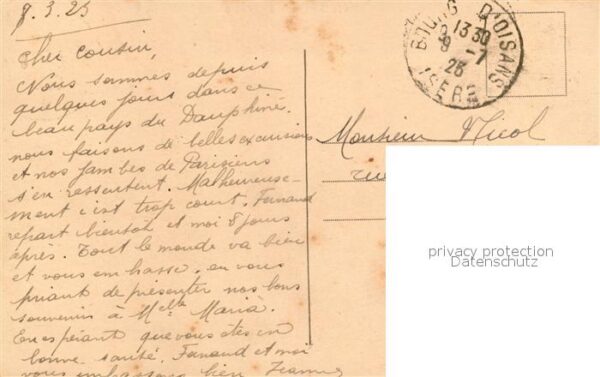 8.3.23
Cher Cousin,
Nous sommes depuis
quelques jours dans ce
beau pays du Dauphiné.
nous faisons de belles excursions
et nos jambes de Parisiens
s'en ressentent. Malheureuse-
ment c'est trop court. Fernand
repart bientot et moi 8 jours
après. Tout le monde va bien
et vous embrasse. en vous
priant de présenter nos bons
souvenirs à Melle Maria.
En espérant que vous êtes en
bonne santé. Fernand et moi
vous embrassons bien Jeanne
BOURG D'OISANS
13 30
9 - 7
23
ISERE
Monsieur Nicol
rue
privacy protection
Datenschutz